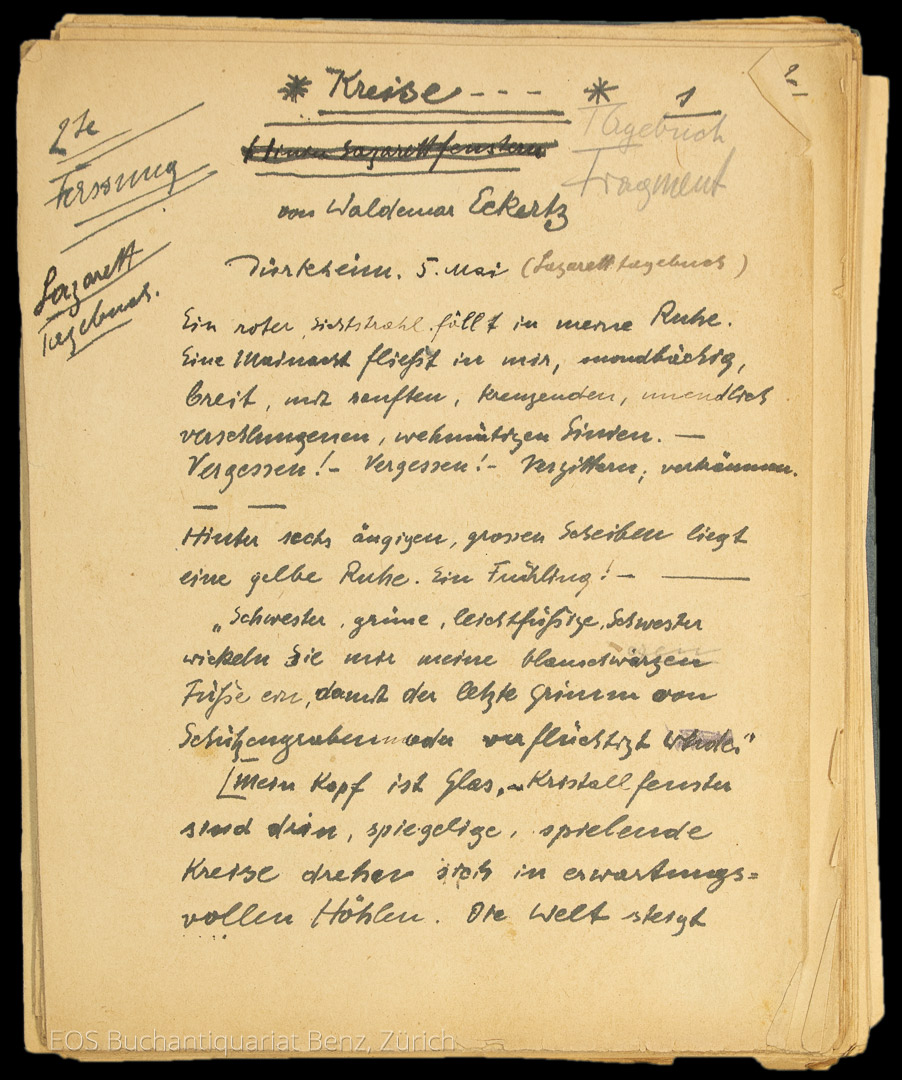 * Kreise - - - * 1
2
2te
Fassung
Hinter Lazarettfenstern
Tagebuch
Fragment
von Waldemar Eckertz
Lazarett
Tagebuch.
Dürkheim. 5. Mai (Lazaretttagebuch)
Ein roter Lichtstrahl fällt in meine Ruhe.
Eine Mainacht fließt in mir, mondbäckig,
breit, mit sanften, kreuzenden, unendlich
verschlungenen, wehmütigen Linien. —
Vergessen! - Vergessen! - Verzittern, verträumen.
— —
Hinter sechs äugigen, grossen Scheiben liegt
eine gelbe Ruhe. Ein Frühling! - —
„Schwester, grüne, leichtfüßige, Schwester
wickeln Sie mir meine blauschwarzen
Füße ein, damit der letzte Grimm von
Schützengraben verflüchtigt
[Mein Kopf ist Glas, - Kristallfenster
sind drin, spiegelige, spielende
Kreise drehen sich in erwartungs=
vollen Höhlen. Die Welt steigt
EOS Buchantiquariat Benz, Zürich